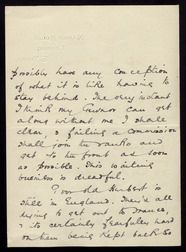 possibly have any conception
of what it is like having to
stay behind. The very instant
I think my Guvnor can get
along without me I shall
clear, & failing a commission
shall join the ranks and
get to the front as soon
as possible. This waiting
business is dreadful.
Poor old Herbert is
still in England. They're all
dying to get out to France,
& its certainly frightfully hard
on them being kept back so